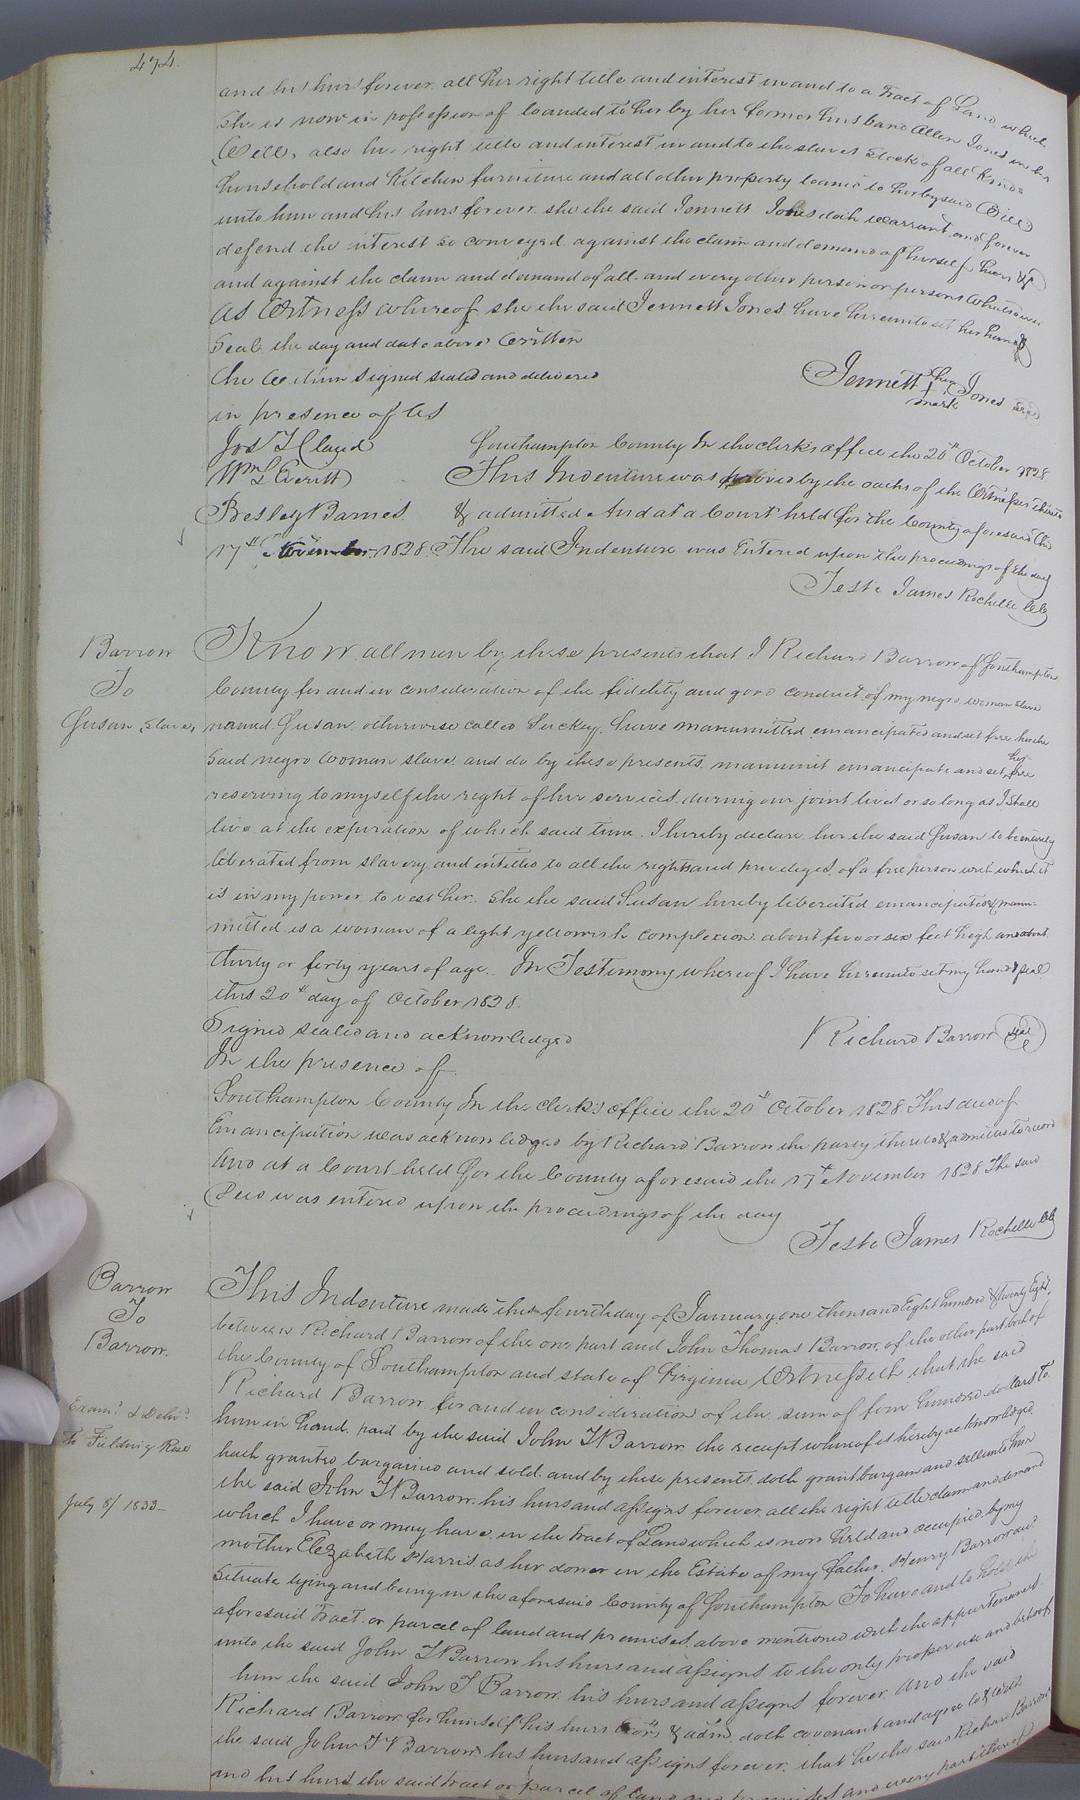 474.
and his heirs forever all her right title and interest in and to a tract of Land which
She is now in possession of loaned to her by her former husband Allen Jones in his
Will, also her right title and interest in and to the slaves Stock of all kinds
household and Kitchen furniture and all other property loaned to her by said Will
unto him and his heirs forever she the said Jennett Jones doth warrant and forever
defend the interest so conveyed against the claim and demand of herself heirs &c
and against the claim and demand of all and every other person or persons whatsoever
As Witness whereof she the said Jennett Jones have hereunto set her hand &
Seal the day and date above Written
The Within signed sealed and delivered
in presence of us
Jennett her + mark Jones seal
Jos T Claud
Wm L Everitt
Besley Barnes
Southampton County In the clerks office the 20th October 1828
This Indenture was proved by the oaths of the Witnesses thereto
& admitted And at a Court held for the County aforesaid the
17th November 1828 The said Indenture was Entered upon the proceedings of the day
Teste James Rochelle Clk
Barrow
To
Susan, Slave,
Know all men by these presents that I Richard Barrow of Southampton
County for and in consideration of the fidelity and good conduct of my negro woman slave
named Susan otherwise called Suckey, have manumitted emancipated and set free her the
Said negro woman slave and do by these presents, manumit emancipate and set her free
reserving to myself the right of her services during our joint lives or so long as I shall
live at the expiration of which said time I hereby declare her the said Susan to be entirely
liberated from slavery and intitled to all the rights and priviledges of a free person with which it
is in my power to vest her. She the said Susan hereby liberated emancipated & manu-
mitted is a woman of a light yellowish complexion about five or six feet high and about
thirty or forty years of age. In Testimony whereof I have hereunto set my hand & seal
this 20th day of October 1828.
Signed sealed and acknowledged
In the presence of
Richard Barrow seal
Southampton County In the clerk's office the 20th October 1828 This deed of
Emancipation was acknowledged by Richard Barrow the party thereto & admitted to record
And at a Court held for the County aforesaid the 17th November 1828 The said
Deed was entered upon the proceedings of the day
Teste James Rochelle Clk
Barrow
To
Barrow.
Examd & Delivd
To Fielding Rose
July 8/1833
This Indenture made this fourth day of January one thousand Eight hundred & twenty Eight,
between Richard Barrow of the one part and John Thomas Barrow, of the other part both of
the County of Southampton and state of Virginia Witnesseth that the said
Richard Barrow for and in consideration of the sum of four hundred dollars to
him in hand paid by the said John T Barrow the receipt whereof is hereby acknowledged
hath granted bargained and sold and by these presents doth grant bargain and sell unto him
the said John T Barrow his heirs and assigns forever all the right title claim and demand
which I have or may have in the tract of Land which is now held and occupied by my
mother Elizabeth Harris as her dower in the Estate of my father Henry Barrow and
Situate lying and being in the aforesaid County of Southampton To have and to hold the
aforesaid tract or parcel of land and premises above mentioned with the appurtenances
unto the said John T Barrow his heirs and assigns to the only proper use and behoof of
him the said John T Barrow his heirs and assigns forever And the said
Richard Barrow for himself his heirs Exors & admrs doth covenant and agree to & with
the said John T Barrow his heirs and assigns forever, that he the said Richard Barrow
and his heirs the said tract or parcel of land and premises and every part thereof